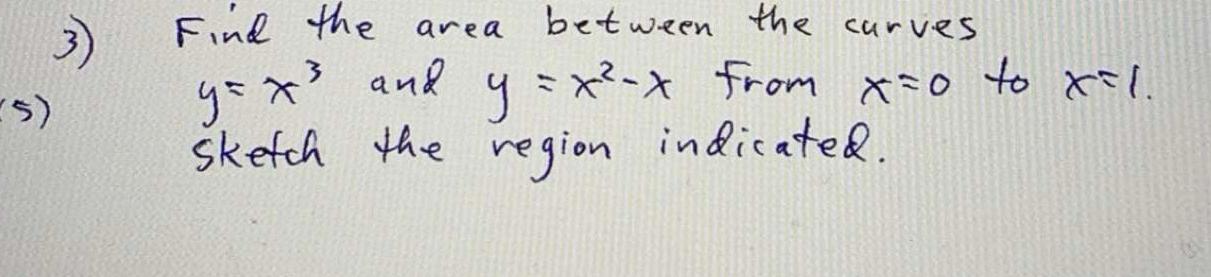 3) Find the area between the curves
y = x³ and y = x²-x from x=0 to x=1.
5)
Sketch the region indicated.